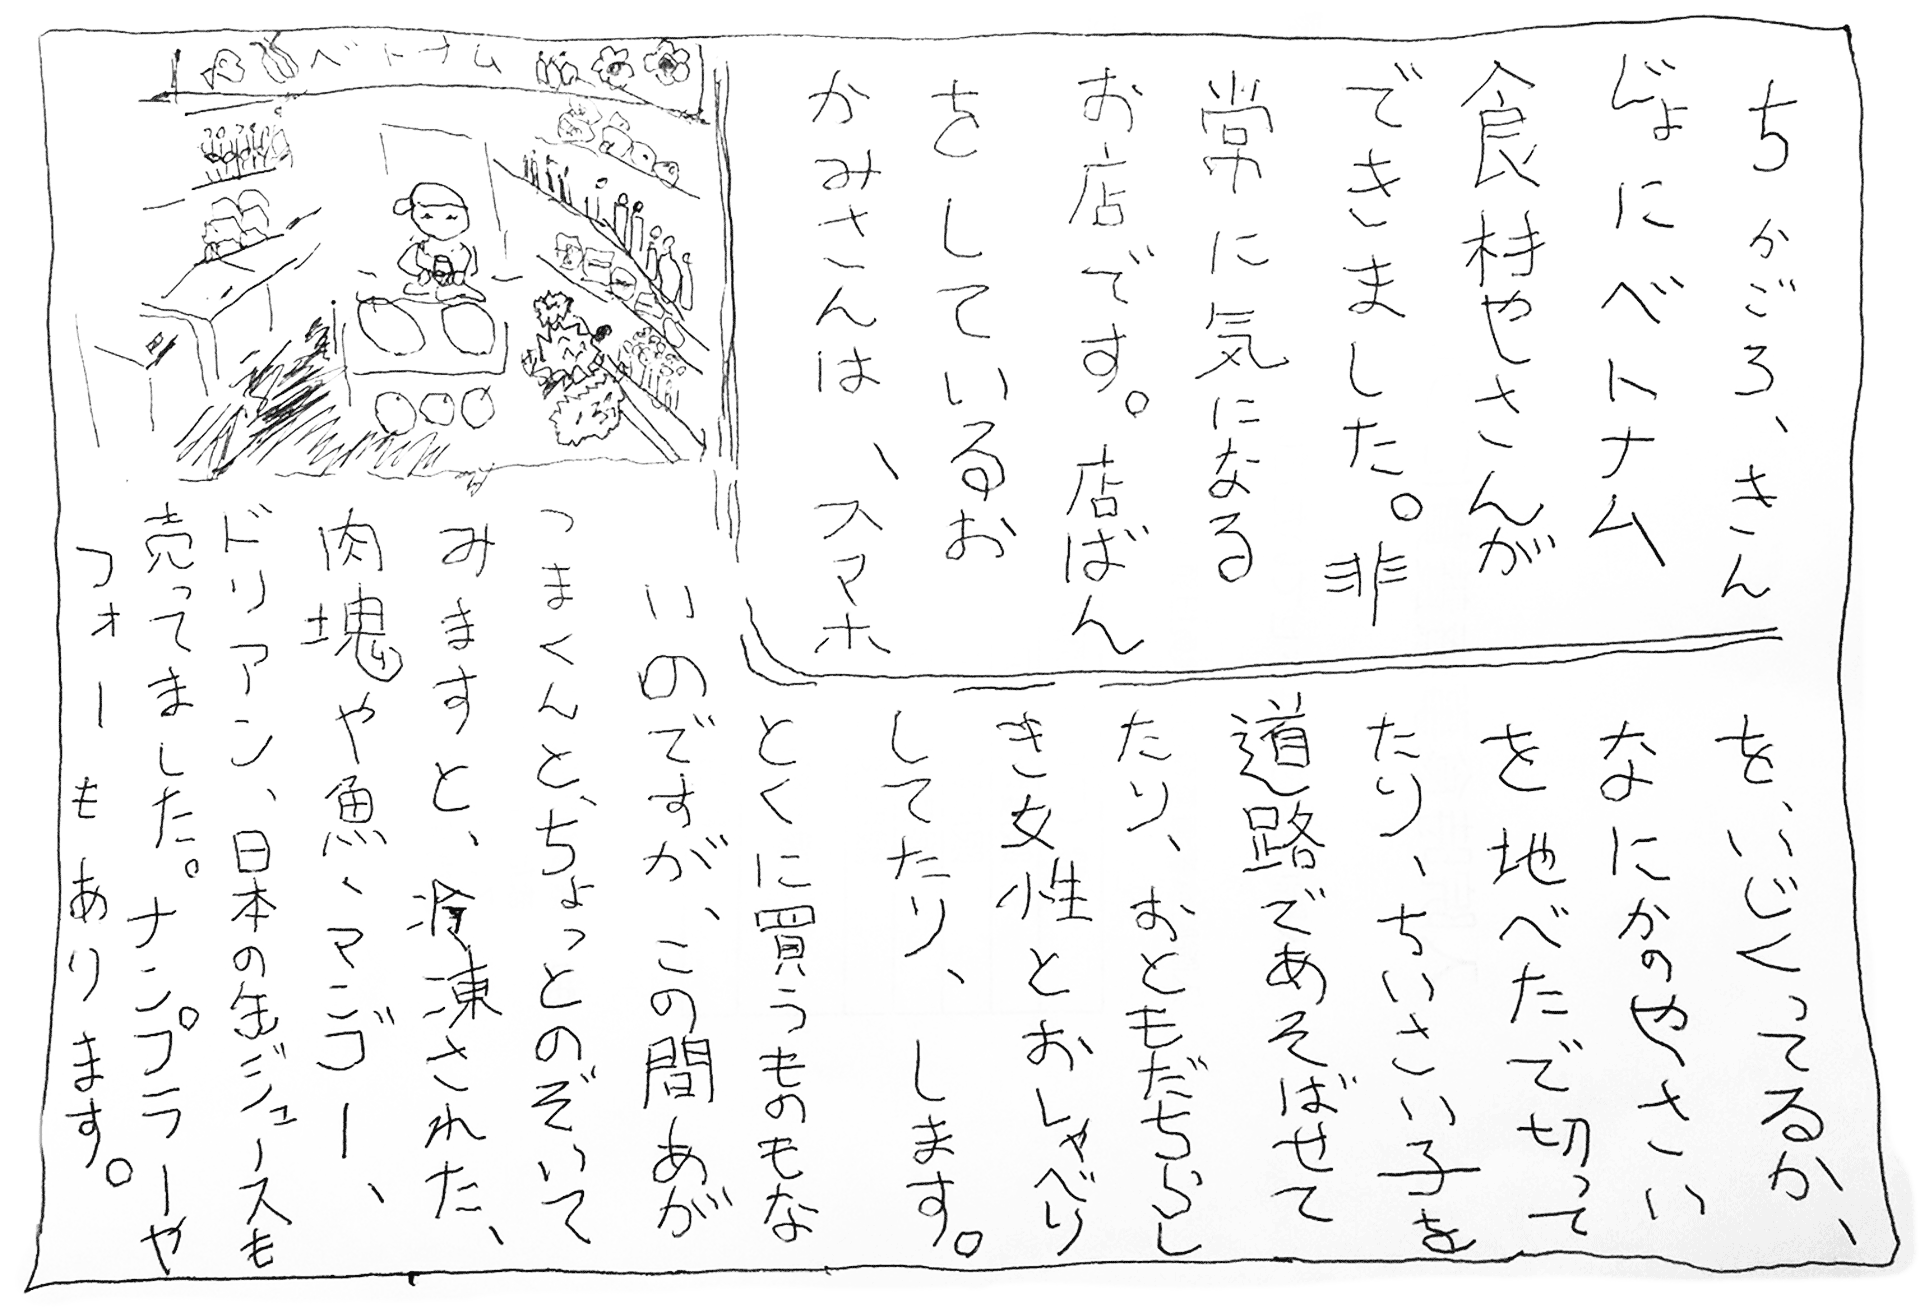 ちかごろ、きん
じょにベトナム
食材やさんが
できました。非
常に気になる
お店です。店ばん
をしているお
かみさんは、スマホ
を、いじくってるか、
なにかのやさい
を地べたで切って
たり、ちいさい子を
道路であそばせて
たり、おともだちらし
き女性とおしゃべり
してたり、します。
とくに買うものもな
いのですが、この間あが
つまくんと、ちょっとのぞいて
みますと、冷凍された、
肉塊や魚、マンゴー、
ドリアン、日本の缶ジュースも
売ってました。ナンプラーや
フォーもあります。
ベトナム